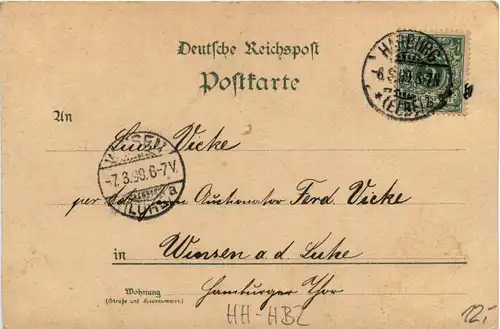 Deutsche Reichspost
Postkarte
HARBURG
-6.3.99.6-7N
* (ELBE) a
An
Luise Vicke
WINSEN
-7.3.99.6-7V.
(LUHE) a
per Auctionator Ferd. Vicke
in Winsen a. d. Luhe
Wohnung
(Straße und Hausnummer)
Hamburger Thor
HH-HBZ
12,-